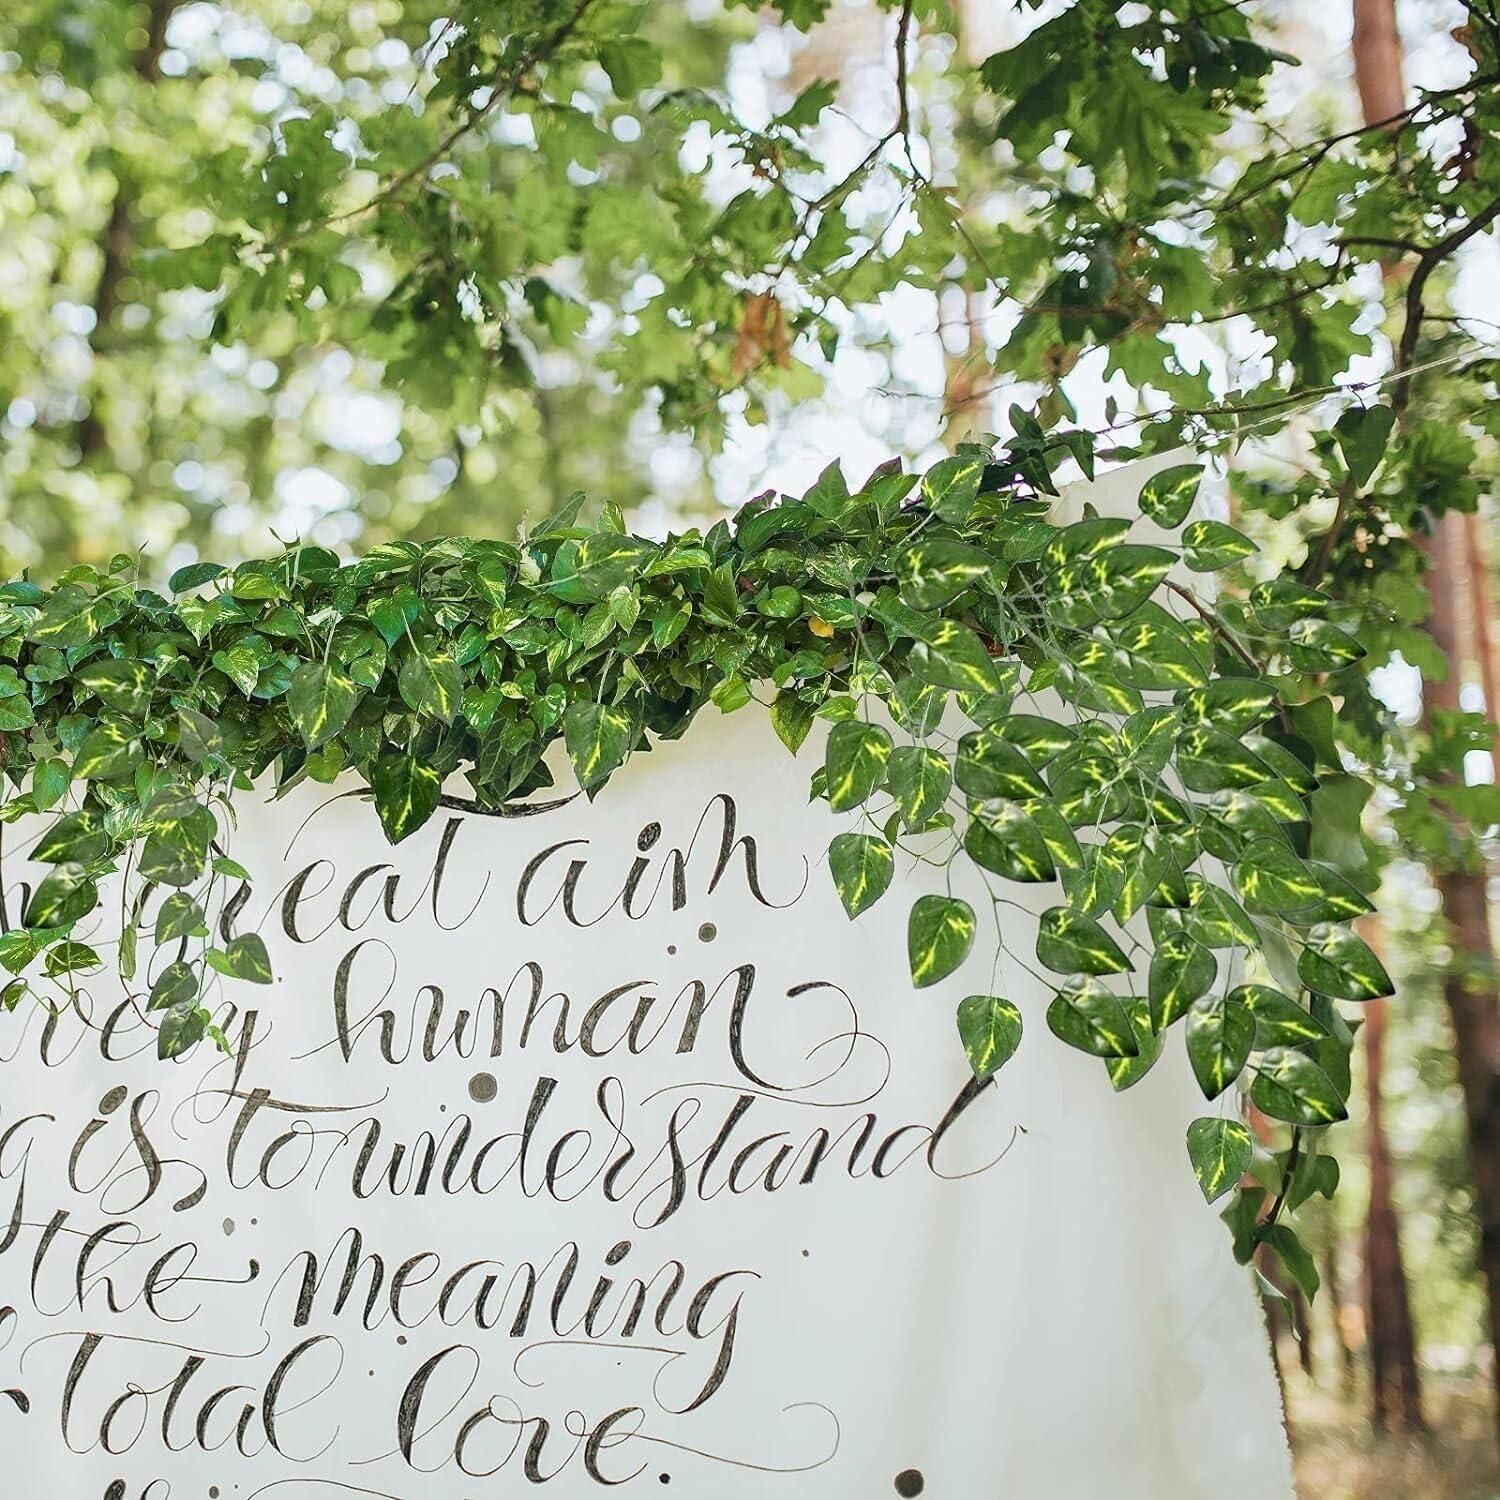 great aim
every human
g is to understand
the meaning
total love.
is